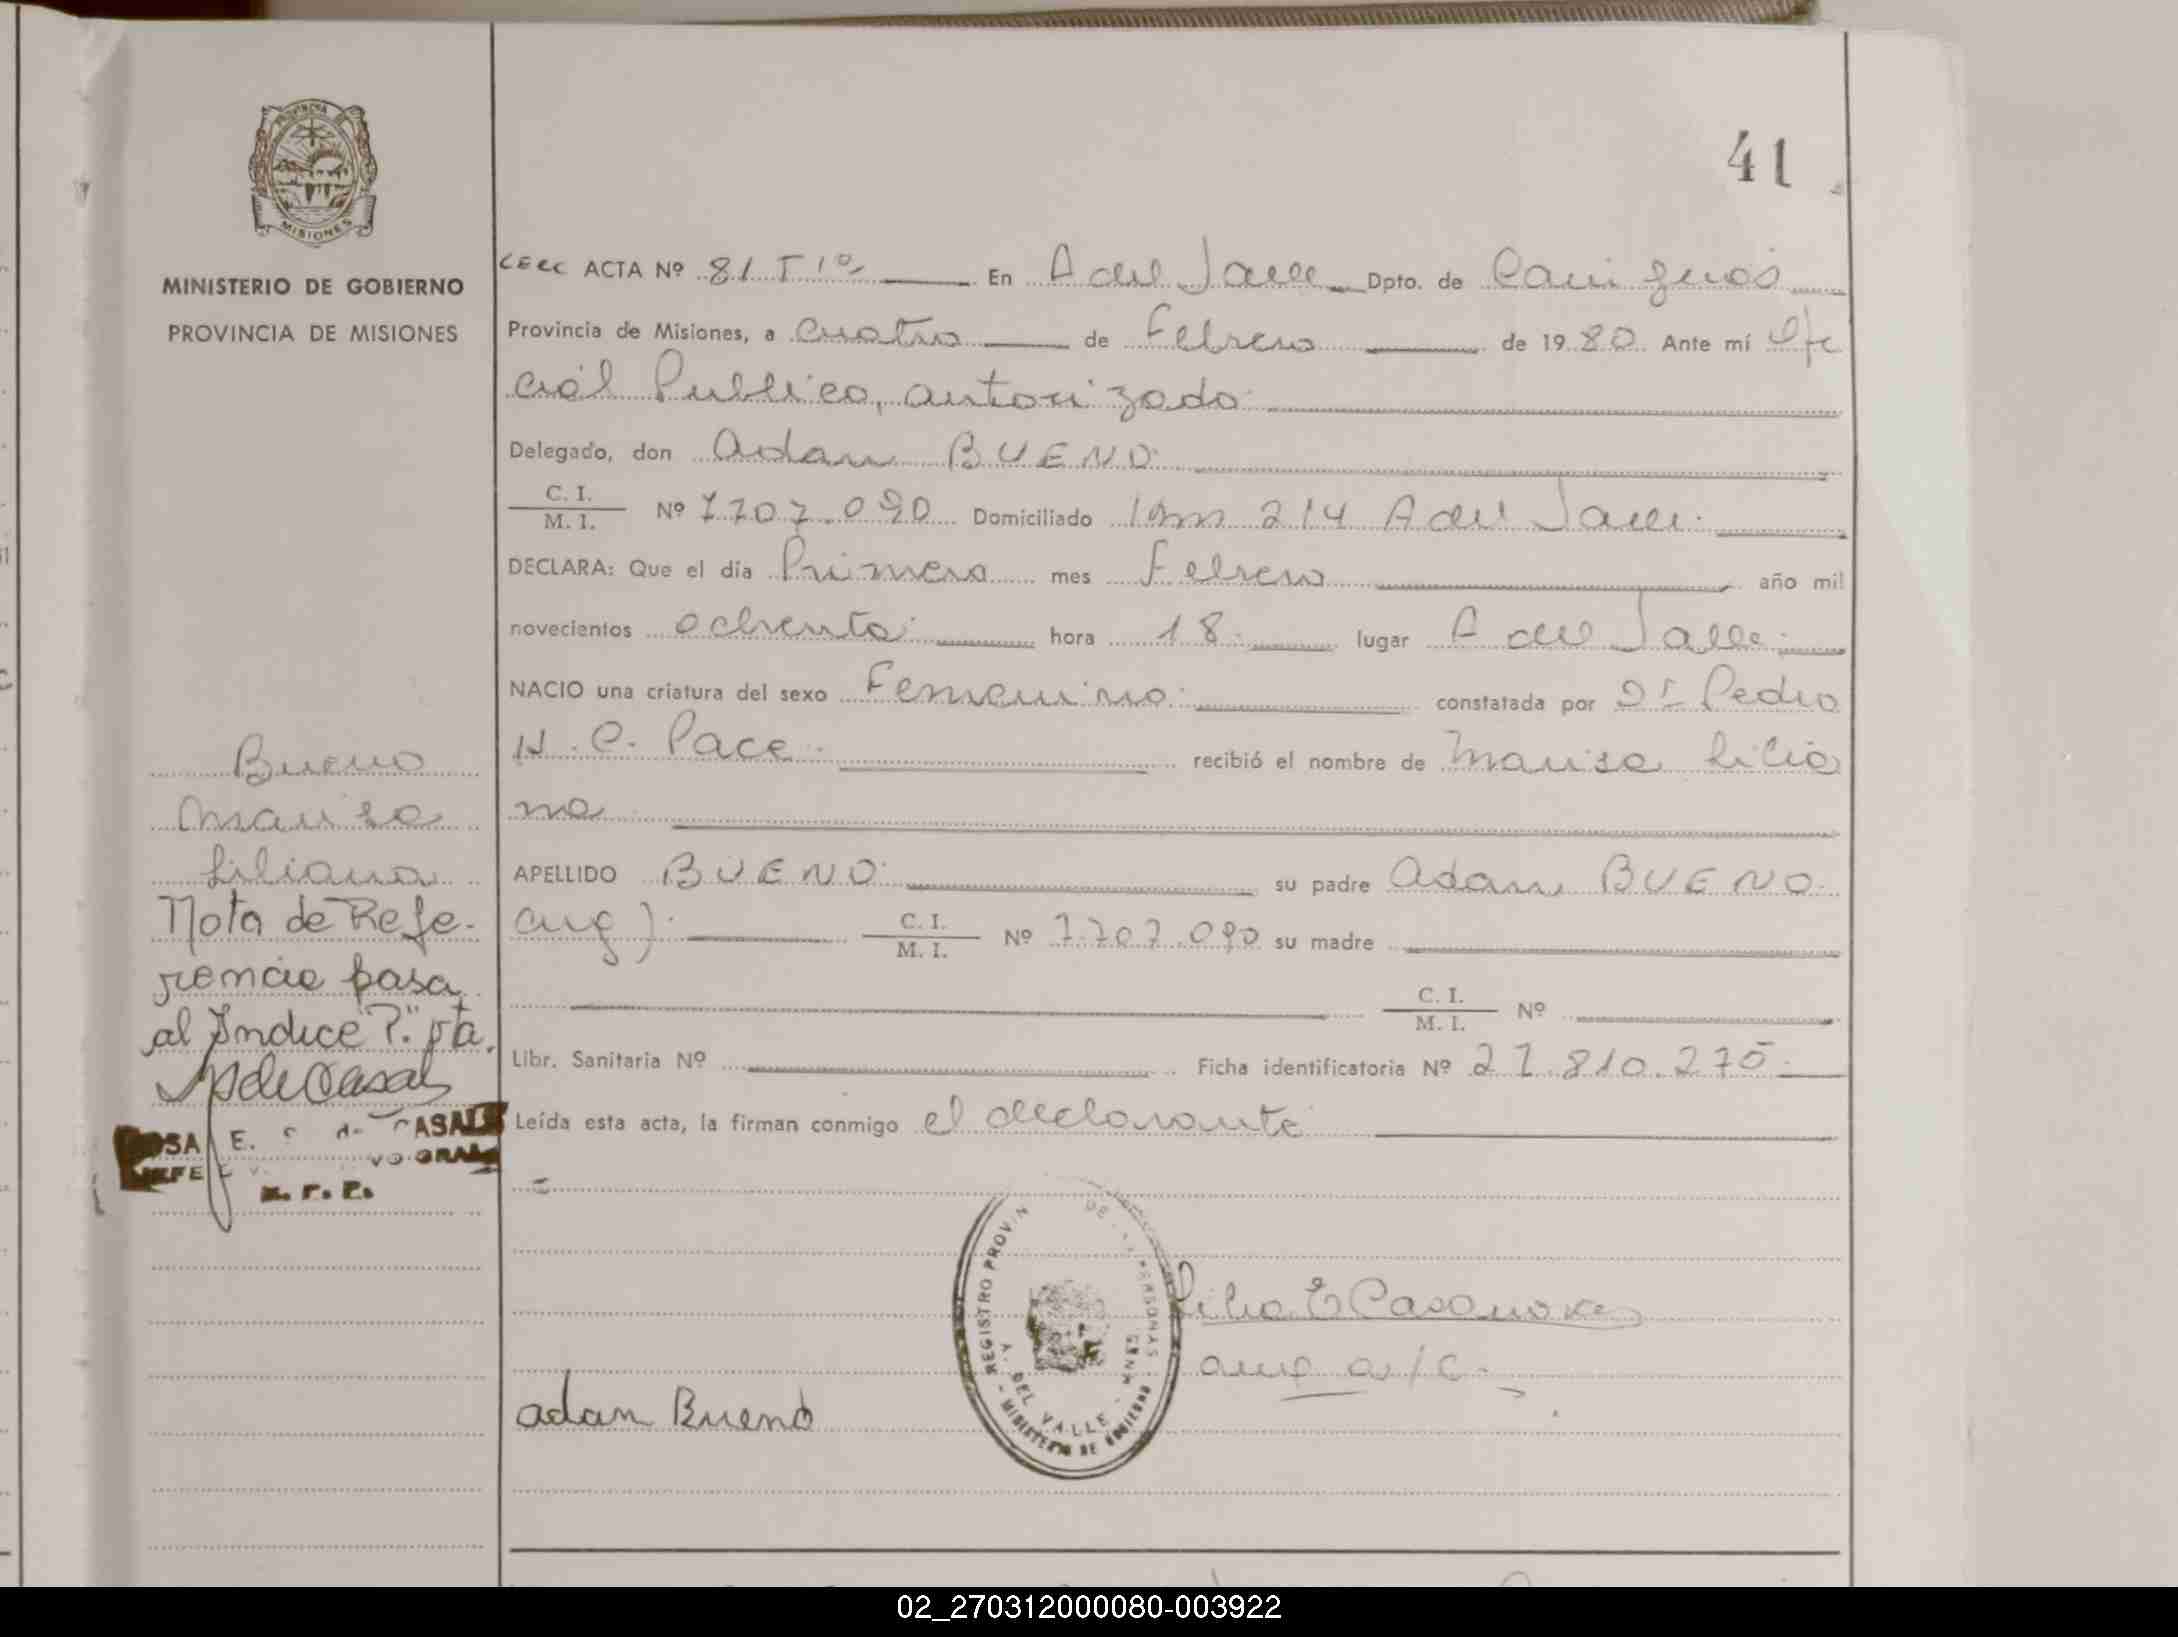 41
PROVINCIA DE
MISIONES
MINISTERIO DE GOBIERNO
PROVINCIA DE MISIONES
ACTA Nº 81 T 1º En A del Valle Dpto. de Cainguás
Provincia de Misiones, a cuatro de Febrero de 1980 Ante mí Ofi
cial Publico, autorizado
Delegado, don Adan BUENO
C. I.
M. I. Nº 7.707.090 Domiciliado Km 214 A del Valle
DECLARA: Que el día Primero mes Febrero año mil
novecientos ochenta hora 18 lugar A del Valle
NACIO una criatura del sexo Femenino constatada por Dr Pedro
H. C. Pace recibió el nombre de Marisa Lilia
na
APELLIDO BUENO su padre Adan BUENO
arg) C. I.
M. I. Nº 7.707.090 su madre
C. I.
M. I. Nº
Libr. Sanitaria Nº Ficha identificatoria Nº 27.810.275
Leída esta acta, la firman conmigo el declarante
Bueno
Marisa
Liliana
Nota de Refe-
rencia pasa
al Indice
E. CASALE
REGISTRO PROVIN DE PERSONAS
A. DEL VALLE - MNES
MINISTERIO DE GOBIERNO
Lilia E Casanova
aux a/c
adan Bueno
02_270312000080-003922